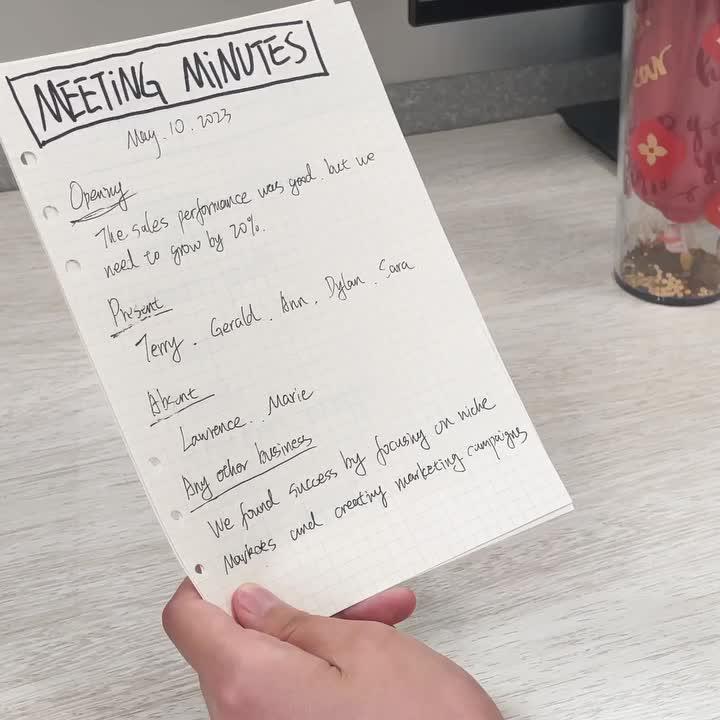 MEETING MINUTES
May. 10. 2023
Opening
The sales performance was good. but we
need to grow by 20%.
Present
Terry. Gerald. Ann. Dylan. Sara
Absent
Lawrence.. Marie
Any other business
We found success by focusing on niche
Markets and creating marketing campaigns
ear